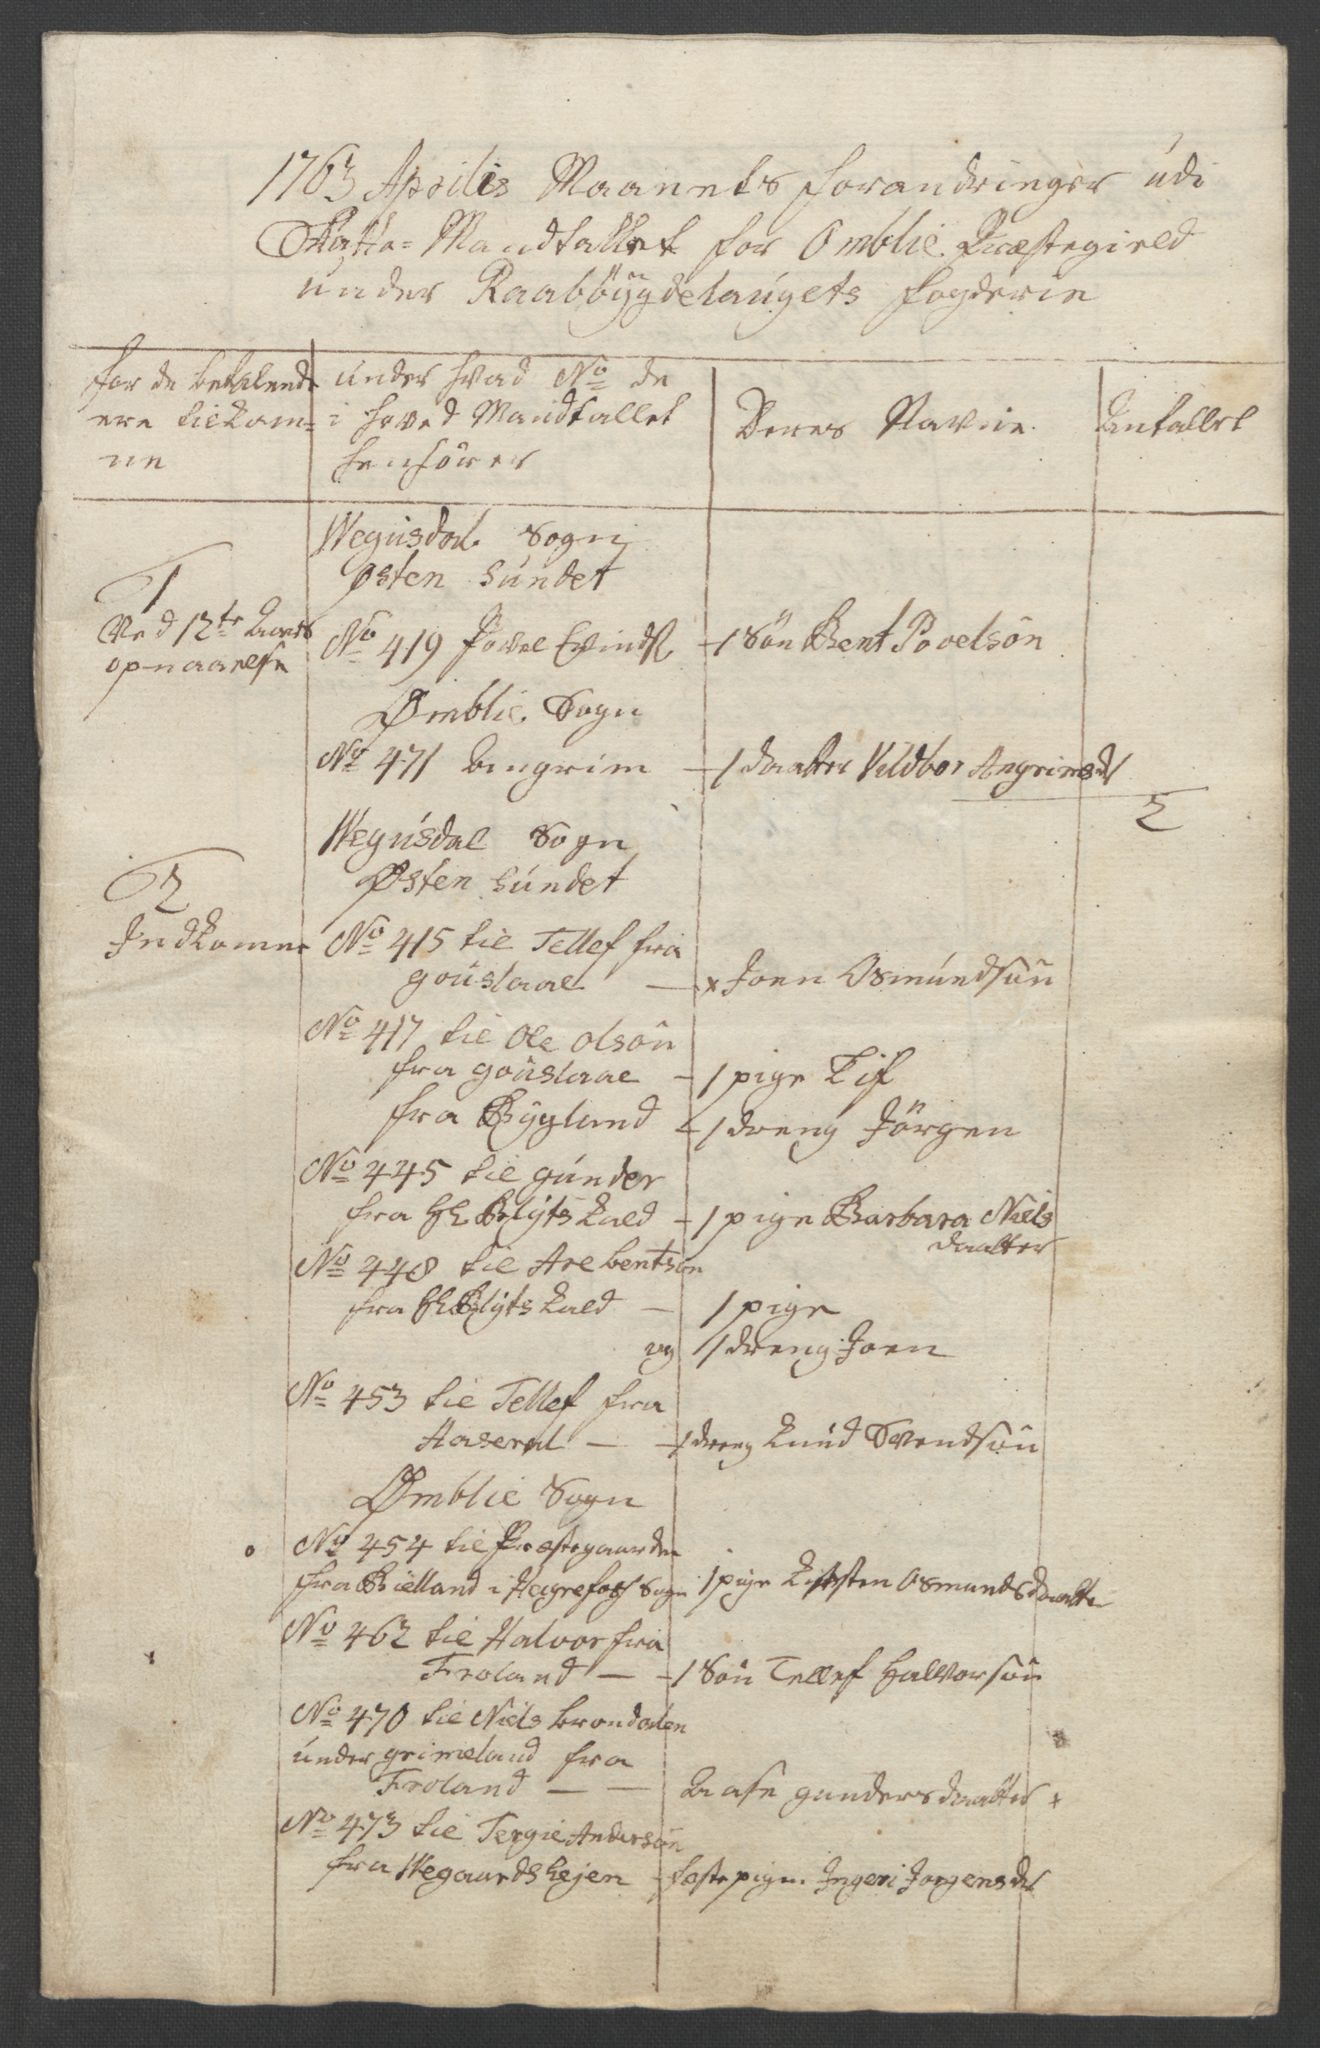 1763 Aprilis Maanets forandringer udi
Skatte= Mandtallet for Omblie Præstegield
under Raabøygdelaugets fogderie
for de betalende
ere tilkom=
ne
under hvad No de
i hoved Mandtallet
henhörer
Deres Navne.
Antallet
Wegusdal Sogn
Østen Sundet
1
Ved 12te Aars
opnaaelse
No 419 Povel Evinds.
1 Sön Bent Povelsön
Omblie Sogn
No 471 Angrim
1 daatter Vildbor Angrimsd
2
Wegusdal Sogn
Østen Sundet
2
Indkomne
No 415 til Tellef fra
gouslaae
x Joen Osmundsön
No 417 til Ole Olsön
fra gouslaae
1 pige Lif
fra Bygland
1 dreng Jörgen
No 445 til gunder
fra Hr Blyts kald
1 pige Barbara Niels
daatter
No 448 til Are bentsön
fra Hr Blyts kald
1 pige
og
1 dreng Joen
No 453 til Tellef fra
Haseraal
1 dreng Knud Svendsön
Omblie Sogn
No 454 til Præstegaarden
fra Bielland i Sogn
1 pige Kisten Osmundsdaatter
No 462 til Halvor fra
Froland
1 Sön Tellef Halvorsön
No 470 til Niels brondalen
under grimeland fra
Froland
Aase gundersdaatter x
No 473 til Tergie Andersön
fra Wegaardshejen
fæste pigen Ingeri Jorgensd